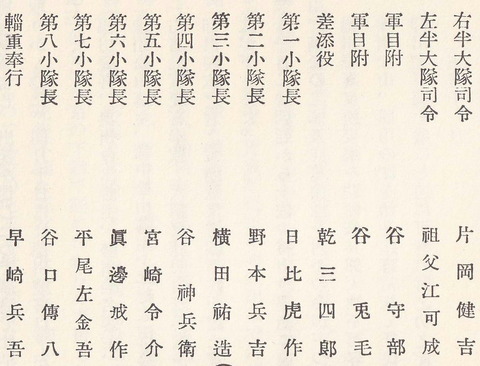 右半大隊司令 片岡健吉
左半大隊司令 祖父江可成
軍目附 谷守部
軍目附 谷兎毛
差添役 乾三四郎
第一小隊長 日比虎作
第二小隊長 野本兵吉
第三小隊長 横田祐造
第四小隊長 谷神兵衛
第五小隊長 宮崎令介
第六小隊長 眞邊戒作
第七小隊長 平尾左金吾
第八小隊長 谷口傳八
輜重奉行 早崎兵吾